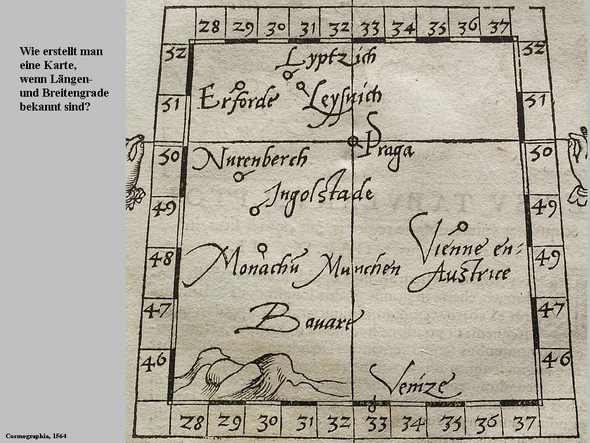 Wie erstellt man
eine Karte,
wenn Längen-
und Breitengrade
bekannt sind?
28 29 30 31 32 33 34 35 36 37
52 Lyptzich 52
51 Erforde Leysnich 51
50 Nurenberch Praga 50
49 Ingolstade 49
48 Monachū Munchen Vienne en= 49
Austrice
47 Bavare 47
46 46
Venize
28 29 30 31 32 33 34 35 36 37
Cosmographia, 1564